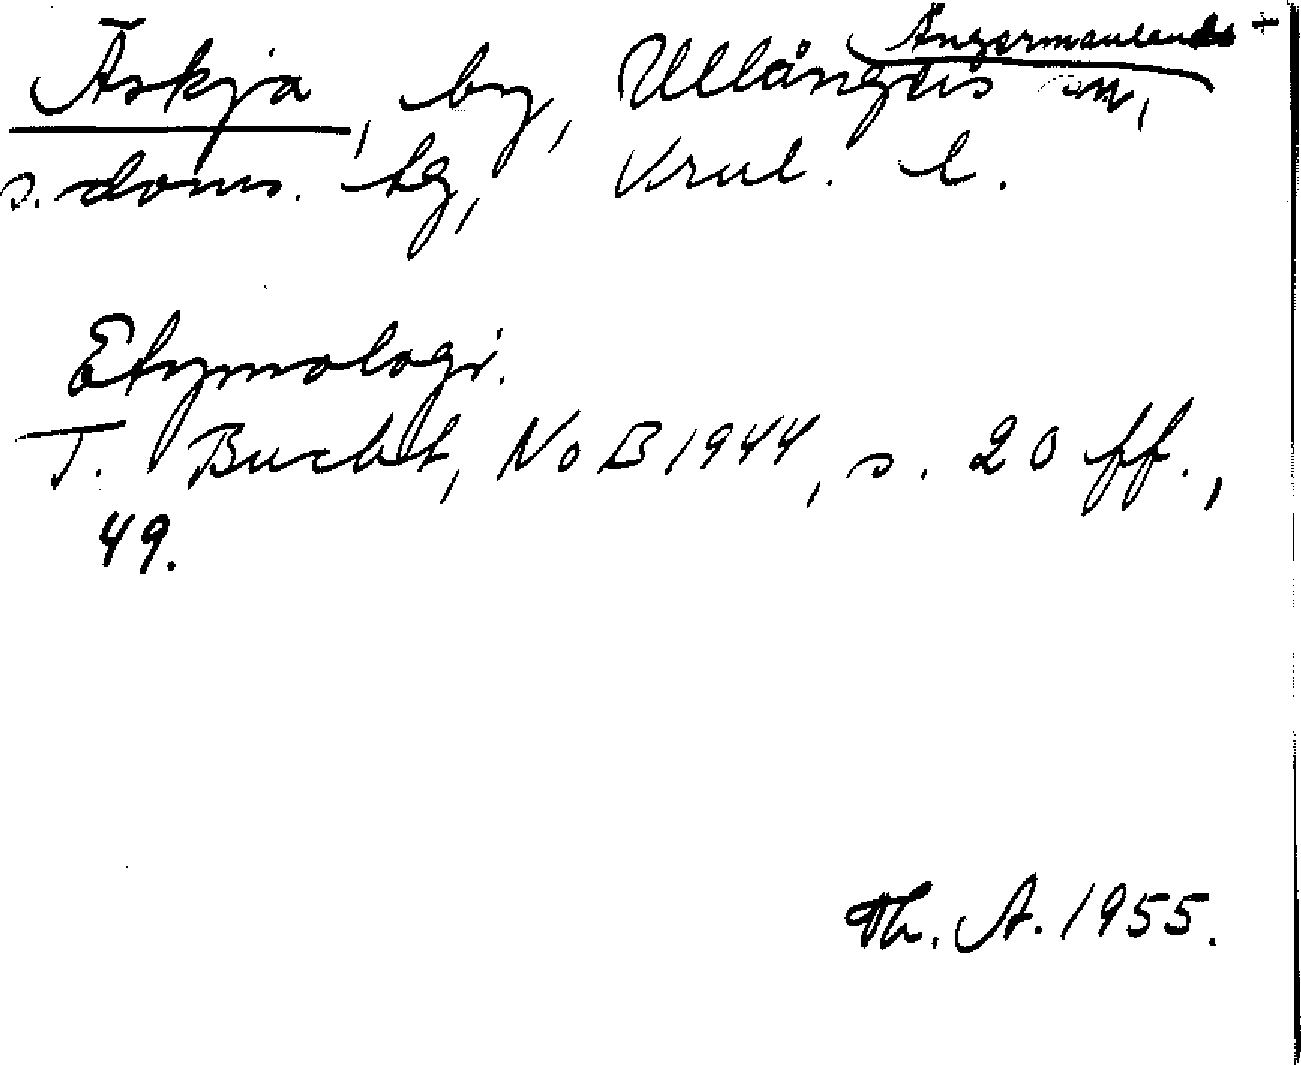 Äskja, by, Ullångers sn, Ångermanlands +
s. doms. hg, Vrnl. l.
Etymologi.
T. Bucht, NoB 1944, s. 20 ff.,
49.
Th. A. 1955.